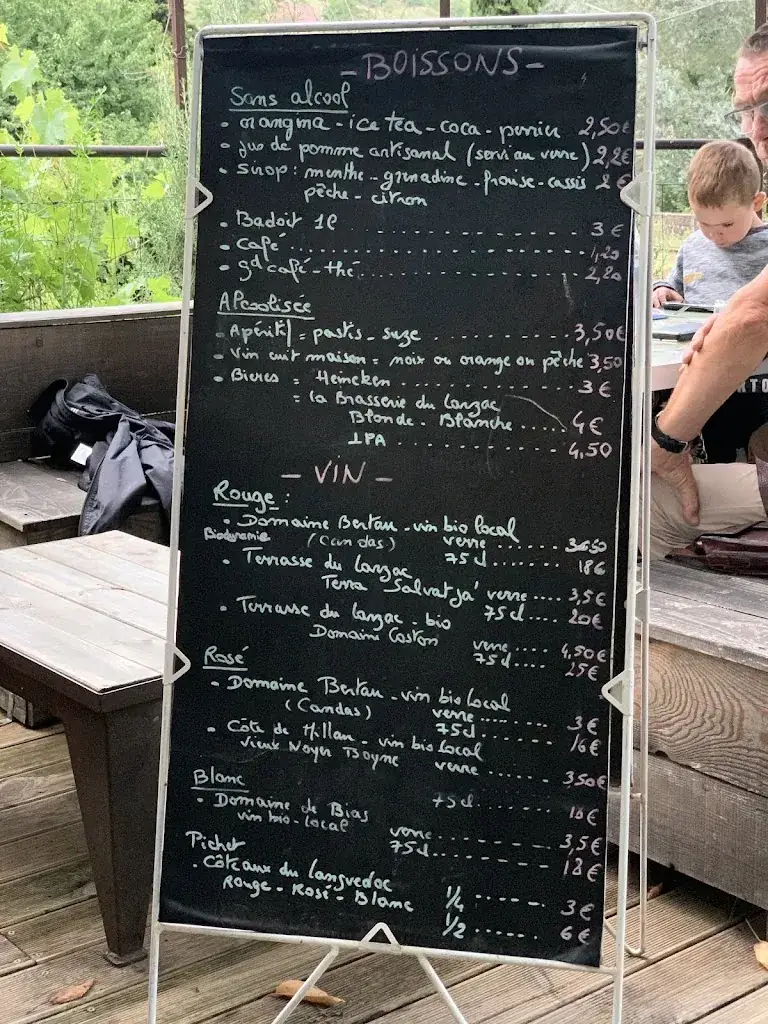 - BOISSONS -
Sans alcool
• orangina - ice tea - coca - perrier 2,50€
• jus de pomme artisanal (servi au verre) 2,2€
• sirop : menthe - grenadine - fraise - cassis 2€
pêche - citron
• Badoit 1l ........ 3€
• Café ........ 1,20
• gd café - thé ........ 2,20
Alcoolisée
• Apéritif = pastis - suze ........ 3,50€
• Vin cuit maison = noix ou orange ou pêche 3,50
• Bières = Heineken ........ 3€
= la Brasserie du Larzac
Blonde - Blanche ..... 4€
IPA ........ 4,50
- VIN -
Rouge :
• Domaine Bertau - vin bio local
Biodynamie (Candas) verre ....... 3€50
75cl ....... 18€
• Terrasse du Larzac
Terra Salvatja' verre .... 3,5€
75cl .... 20€
• Terrasse du Larzac - bio
Domaine Coston verre .... 4,50€
75cl .... 25€
Rosé
• Domaine Bertau - vin bio local
(Candas) verre ....... 3€
75cl ....... 16€
• Côte de Millau - vin bio local
Vieux Noyer Boyne verre ...... 3,50€
75cl ....... 18€
Blanc
• Domaine de Bias
vin bio - local verre ........ 3,5€
75cl ........ 18€
Pichet
• Côteaux du Languedoc
Rouge - Rosé - Blanc 1/4 ...... 3€
1/2 ...... 6€